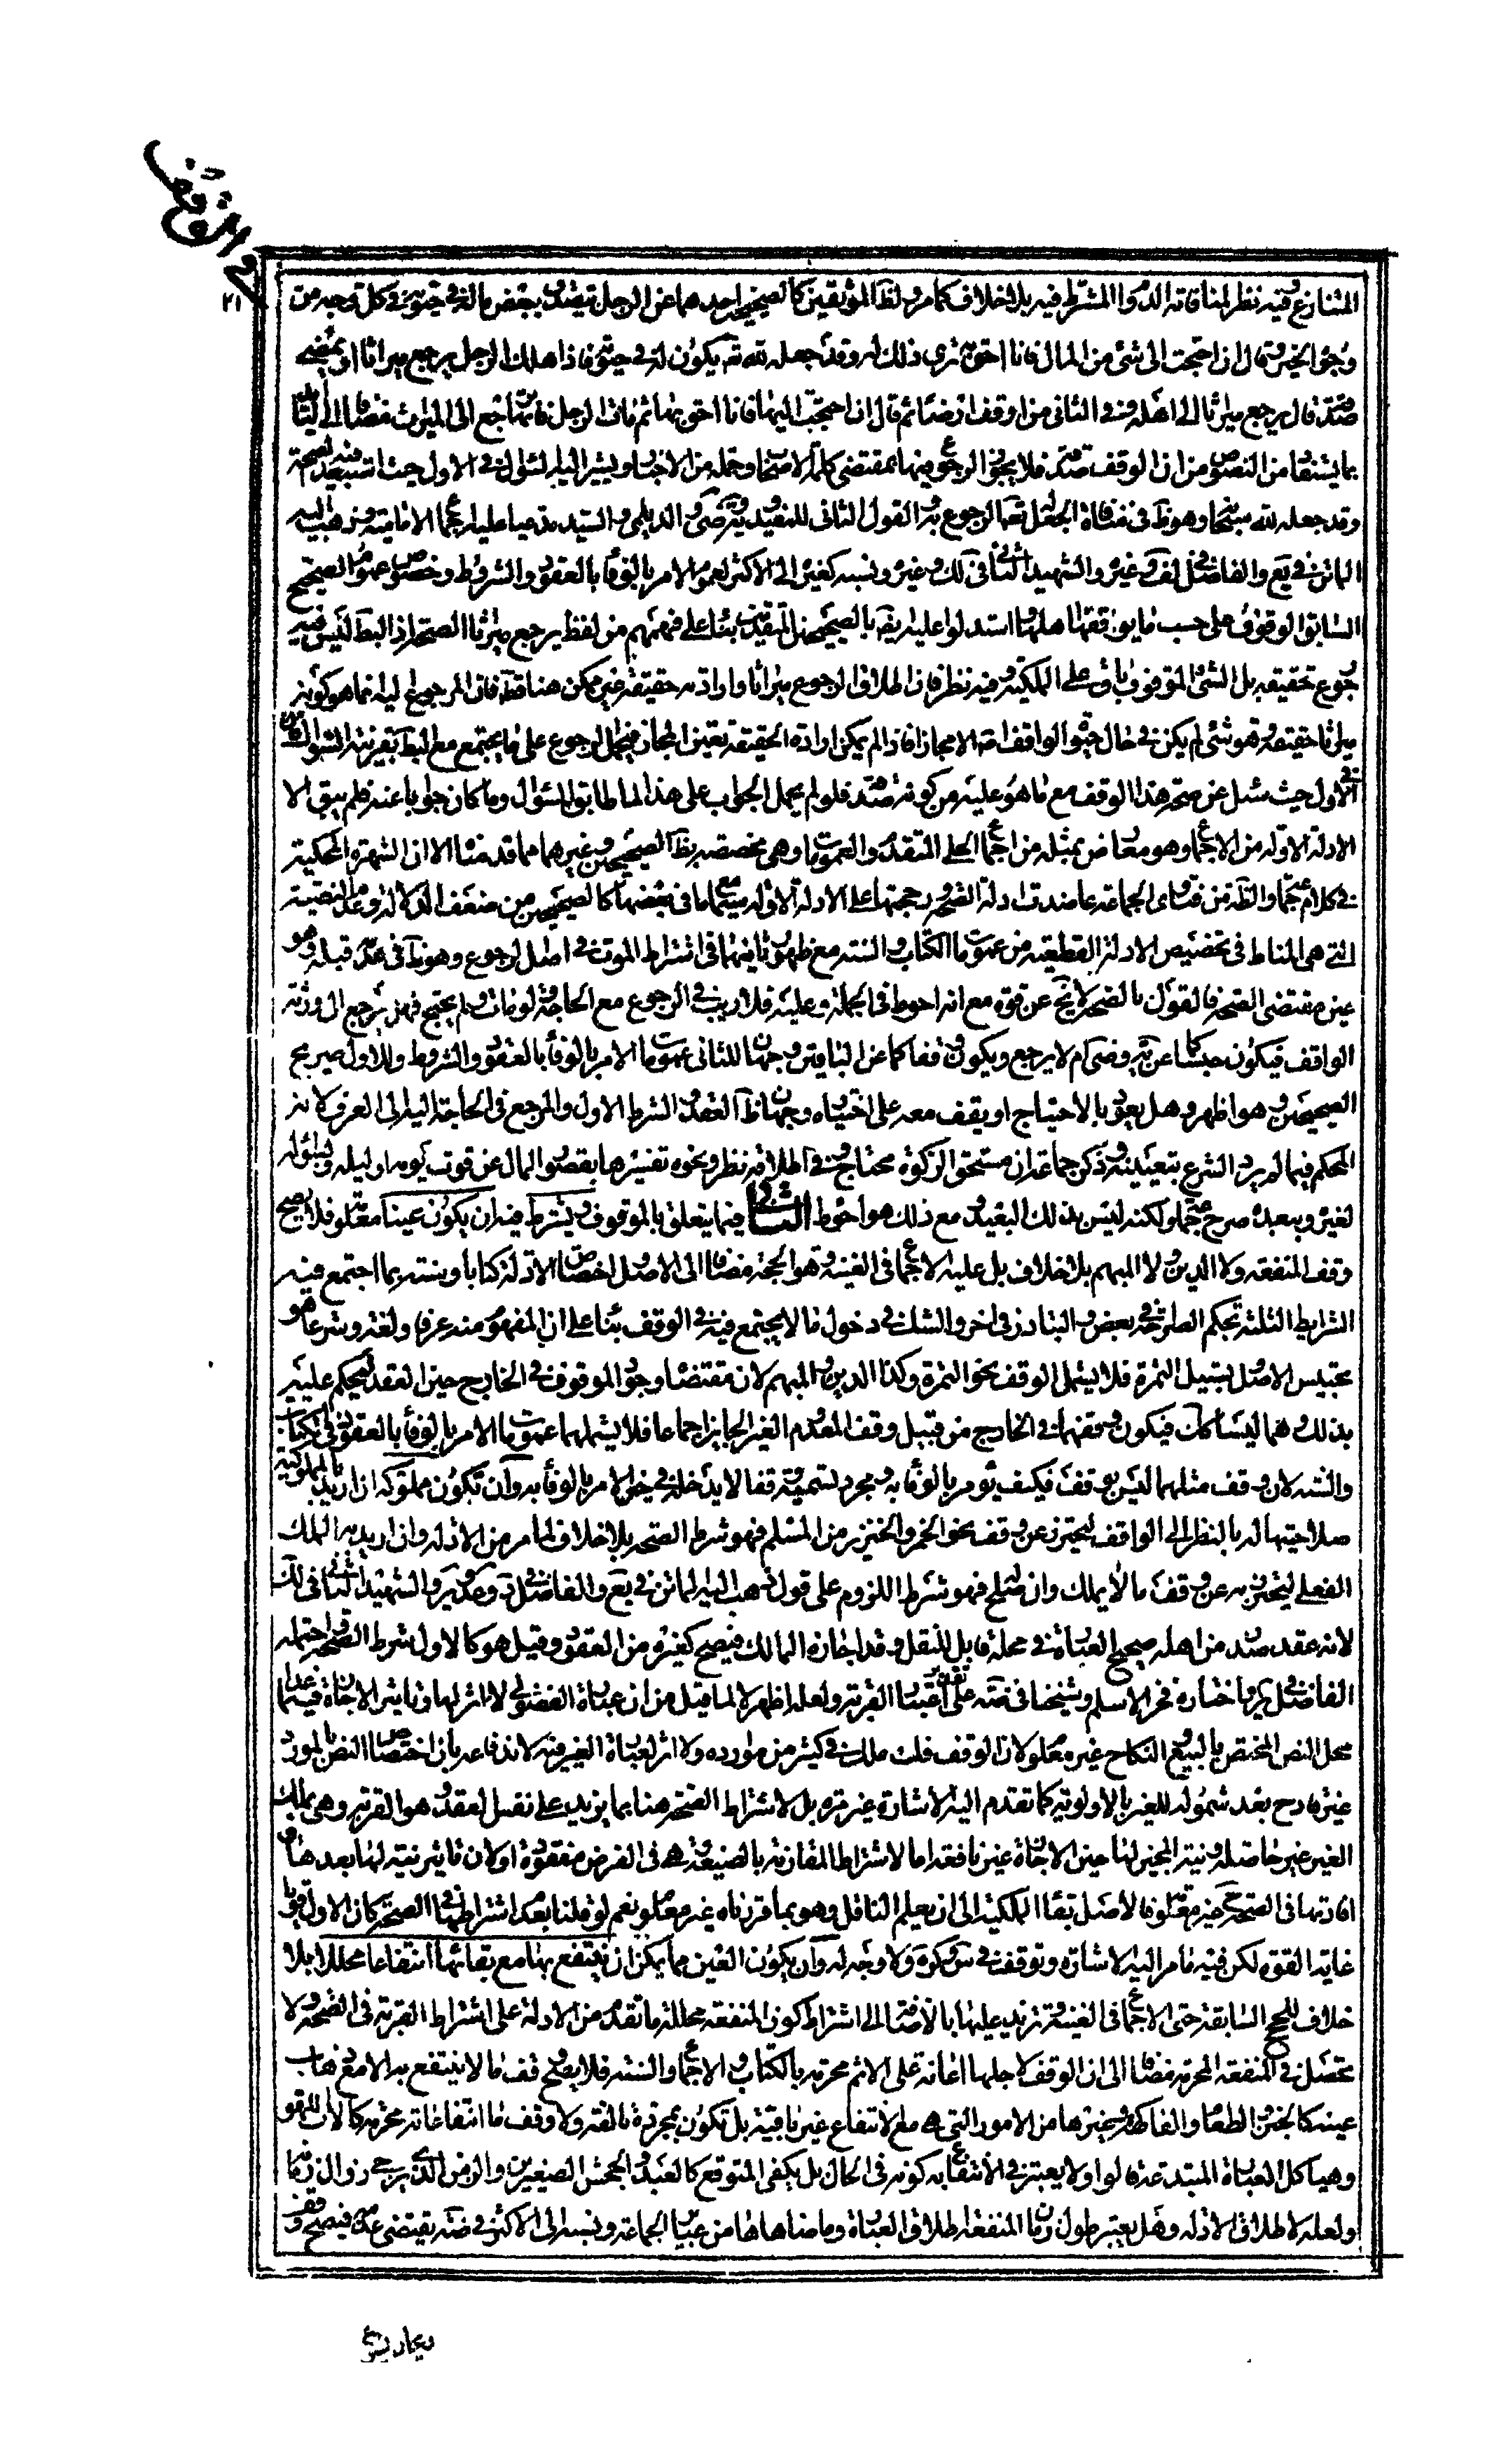 في الوقف
٢١
المتنازع فيه نظر لمنافاته الدوام المشترط فيه بلا خلاف كما مر ولظاهر الموثقين كالصحيح احدهما عن الرجل يتصدق ببعض ماله في حيوته في كل وجه من
وجوه الخير وقال ان احتجت الى شئ من المال فانا احق به ترى ذلك له وقد جعله لله تعالى يكون له في حيوته فاذا هلك الرجل يرجع ميراثا او يمضي
صدقة قال يرجع ميراثا الى اهله وفي الثاني من اوقف ارضا ثم قال ان احتجت اليها فانا احق بها ثم مات الرجل فانها ترجع الى الميراث مضافا الى التأييد
بما يستفاد من النصوص من ان الوقف صدقة فلا يجوز الرجوع فيها بمقتضى كلمة الاصحاب وجملة من الاخبار ويشير اليه السؤال في الاول حيث استبعد فيه الصحة
وقد جعله لله سبحانه وهو ظاهر في منافاة الجعل له تعالى الرجوع به والقول الثاني للمفيد والمرتضى والديلمي والسيد مدعيا عليه اجماع الامامية وذهب اليه
الماتن في يع والفاضل في لف وغيره والشهيد الثاني في لك وغيره ونسبه كغيره الى الاكثر لعموم الامر بالوفاء بالعقود والشروط وخصوص عموم الصحيح
السابق الوقوف على حسب ما يوقفها اهلها وربما استدلوا عليه ايضا بالصحيحين المتقدمين بناء على فهمهم من لفظ يرجع ميراثا الصحة اذ الباطل ليس فيه
رجوع حقيقة بل الشئ الموقوف باق على الملكية وفيه نظر فان اطلاق الرجوع ميراثا وارادته حقيقة غير ممكن هنا قطعا فان المرجوع اليه انما هو كونه
ميراثا حقيقة وهو شئ لم يكن في حال حيوة الواقف الا مجازا فاذا لم يكن ارادة الحقيقة تعين المجاز فيحمل الرجوع على ما يجتمع مع الباطل بقرينة السؤال
في الاول حيث سئل عن صحة هذا الوقف مع ما هو عليه من كونه صدقة فلو لم يحمل الجواب على هذا لما طابق السؤال وما كان جوابا عنه فلم يبق الا
الادلة الاولة من الاجماع وهو معارض بمثله من اجماع الحلي المتقدم والعمومات وهي مخصصة بظاهر الصحيحين وغيرهما مما قدمنا الا ان الشهرة المحكية
في كلام جماعة والظاهرة من فتاوى الجماعة عاضدت ادلة الصحة ورجحتها على الادلة الاولة سيما مع ما في بعضها كالصحيحين من ضعف الدلالة وعدم النصية
التي هي المناط في تخصيص الادلة القطعية من عمومات الكتاب والسنة مع ظهور ثانيهما في اشتراط الموت في اصل الرجوع وهو ظاهر في عدمه قبله وهو
عين مقتضى الصحة فالقول بالصحة لا يخ عن قوة مع انه احوط في الجملة وعليه فلا ريب في الرجوع مع الحاجة ولو مات ولم يحتج فهل يرجع الى ورثة
الواقف فيكون حبسا كما عن ية وضى ام لا يرجع ويكون وقفا كما عن الباقين وجهان للثاني عمومات الامر بالوفاء بالعقود والشروط وللاول صريح
الصحيحين وهو اظهر وهل يعود بالاحتياج او يقف معه على اختياره وجهان ظاهر العقد والشرط الاول والمرجع في الحاجة اليه الى العرف لانه
المحكم فيما لم يرد الشرع بتعيينه وذكر جماعة ان مستحق الزكوة محتاج وفي اطلاقه نظر ونحوه تفسيرها بقصور المال عن قوت يومه وليلة وبسؤاله
لغيره وببعده صرح جماعة ولكنه ليس بذلك البعيد مع ذلك هو احوط الثاني فيما يتعلق بالموقوف ويشترط فيه ان يكون عينا معلوما فلا يصح
وقف المنفعة ولا الدين ولا المبهم بلا خلاف بل عليه الاجماع في الغنية وهو الحجة مضافا الى الاصل واختصاص الادلة كتابا وسنة بما اجتمع فيه
الشرايط الثلثة بحكم الصراحة في بعض والتبادر في اخر والشك في دخول ما لا يجتمع فيه في الوقف بناء على ان المفهوم منه عرفا ولغة وشرعا هو
تحبيس الاصل وتسبيل الثمرة فلا يشمل الوقف نحو الثمرة وكذا الدين والمبهم لان مقتضاه وجود الموقوف في الخارج حين العقد ليحكم عليه
بذلك وهما ليسا كك فيكون وقفهما في الخارج من قبيل وقف المعدوم الغير الجايز اجماعا فلا يشملهما عمومات الامر بالوفاء بالعقود في الكتاب
والسنة لان وقف مثلهما ليس بوقف فكيف يؤمر بالوفاء به ومجرد تسميته وقفا لا يدخله في حيز الامر بالوفاء به وان تكون مملوكة ان اريد بالمملوكية
صلاحيتها له بالنظر الى الواقف ليحترز عن وقف نحو الخمر والخنزير من المسلم فهو شرط الصحة بلا خلاف لما مر من الادلة وان اريد به الملك
الفعلي ليحترز به عن وقف ما لا يملك وان صلح فهو شرط اللزوم على قول ذهب اليه الماتن في يع والفاضل في د وعد وكره والشهيد الثاني في لك
لانه عقد صدر من اهله صحيح العبارة في محله قابل للنقل وقد اجازه المالك فيصح كغيره من العقود وقيل هو كالاول شرط الصحة واحتمله
الفاضل في كره واختاره فخر الاسلام وشيخنا في ضه على تقدير اعتبار القربة ولعله اظهر لا لما قيل من ان عبارة الفضولي لا اثر لها وتاثير الاجازة فيما عدا
محل النص المختص بالبيع والنكاح غير معلوم لان الوقف فك ملك في كثير من موارده ولا اثر لعبارة الغير فيه لاندفاعه بان اختصاص النص بالمورد
غير قادح بعد شموله للغير بالاولوية كما تقدم اليه الاشارة غير مرة بل لاشتراط الصحة هنا بما يزيد على نفس العقد وهو القربة وهي بملك
الغير غير حاصلة ونية المجيز لها حين الاجازة غير نافعة اما لاشتراط المقارنة بالصيغة وهي في الفرض مفقودة او لان تاثير نيته لها بعدها و
افادتها في الصحة ح غير معلوم فالاصل بقاء الملكية الى ان يعلم الناقل وهو بما قررناه غير معلوم نعم لو قلنا بعدم اشتراطها في الصحة كان الاول قويا
غاية القوة لكن فيه ما مر اليه الاشارة وتوقف في س وكره ولا وجه له وان يكون العين مما يمكن ان ينتفع بها مع بقائها انتفاعا محللا بلا
خلاف للحجج السابقة حتى الاجماع في الغنية وتزيد عليها بالاضافة الى اشتراط كون المنفعة محللة ما تقدم من الادلة على اشتراط القربة في الصحة ولا
تحصل في المنفعة المحرمة مضافا الى ان الوقف لاجلها اعانة على الاثم محرمة بالكتاب والاجماع والسنة فلا يصح وقف ما لا ينتفع به الا مع ذهاب
عينه كالخبز والطعام والفاكهة وغيرها من الامور التي هي مع الانتفاع غير باقية بل تكون بمجرده تالفة ولا وقف ما انتفاعاته محرمة كالات اللهو
وهياكل العبادة المبتدعة قالوا ولا يعتبر في الانتفاع به كونه في الحال بل يكفي المتوقع كالعبد والجحش الصغيرين والزمن الذي يرجى زوال زمانته
ولعله لاطلاق الادلة وهل يعتبر طول زمان المنفعة اطلاق العبارة وما ضاهاها من عبائر الجماعة ونسبه الى الاكثر في ضه يقتضي عدمه فيصح وقف